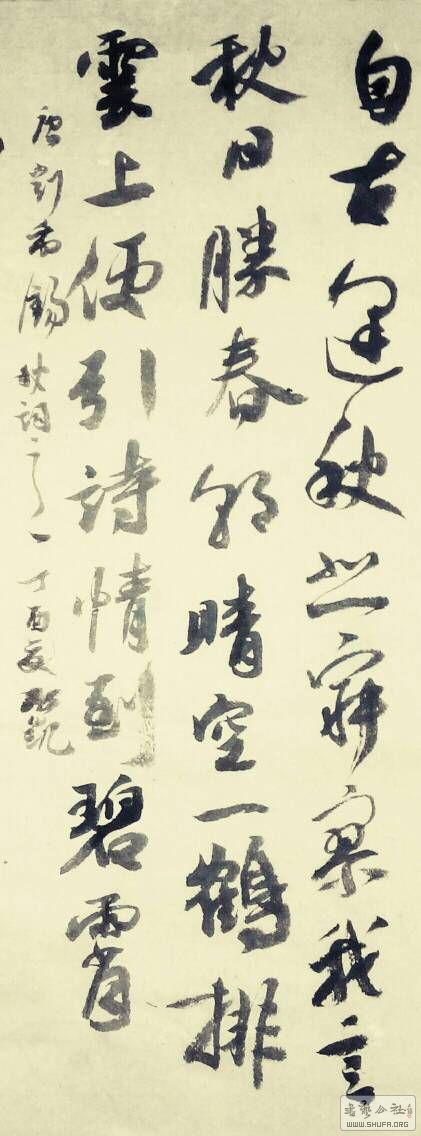 自古逢秋悲寂寥我言
秋日勝春朝晴空一鶴排
雲上便引詩情到碧霄
唐劉禹錫秋詞之一 丁酉夏
WWW.SHUFA.ORG